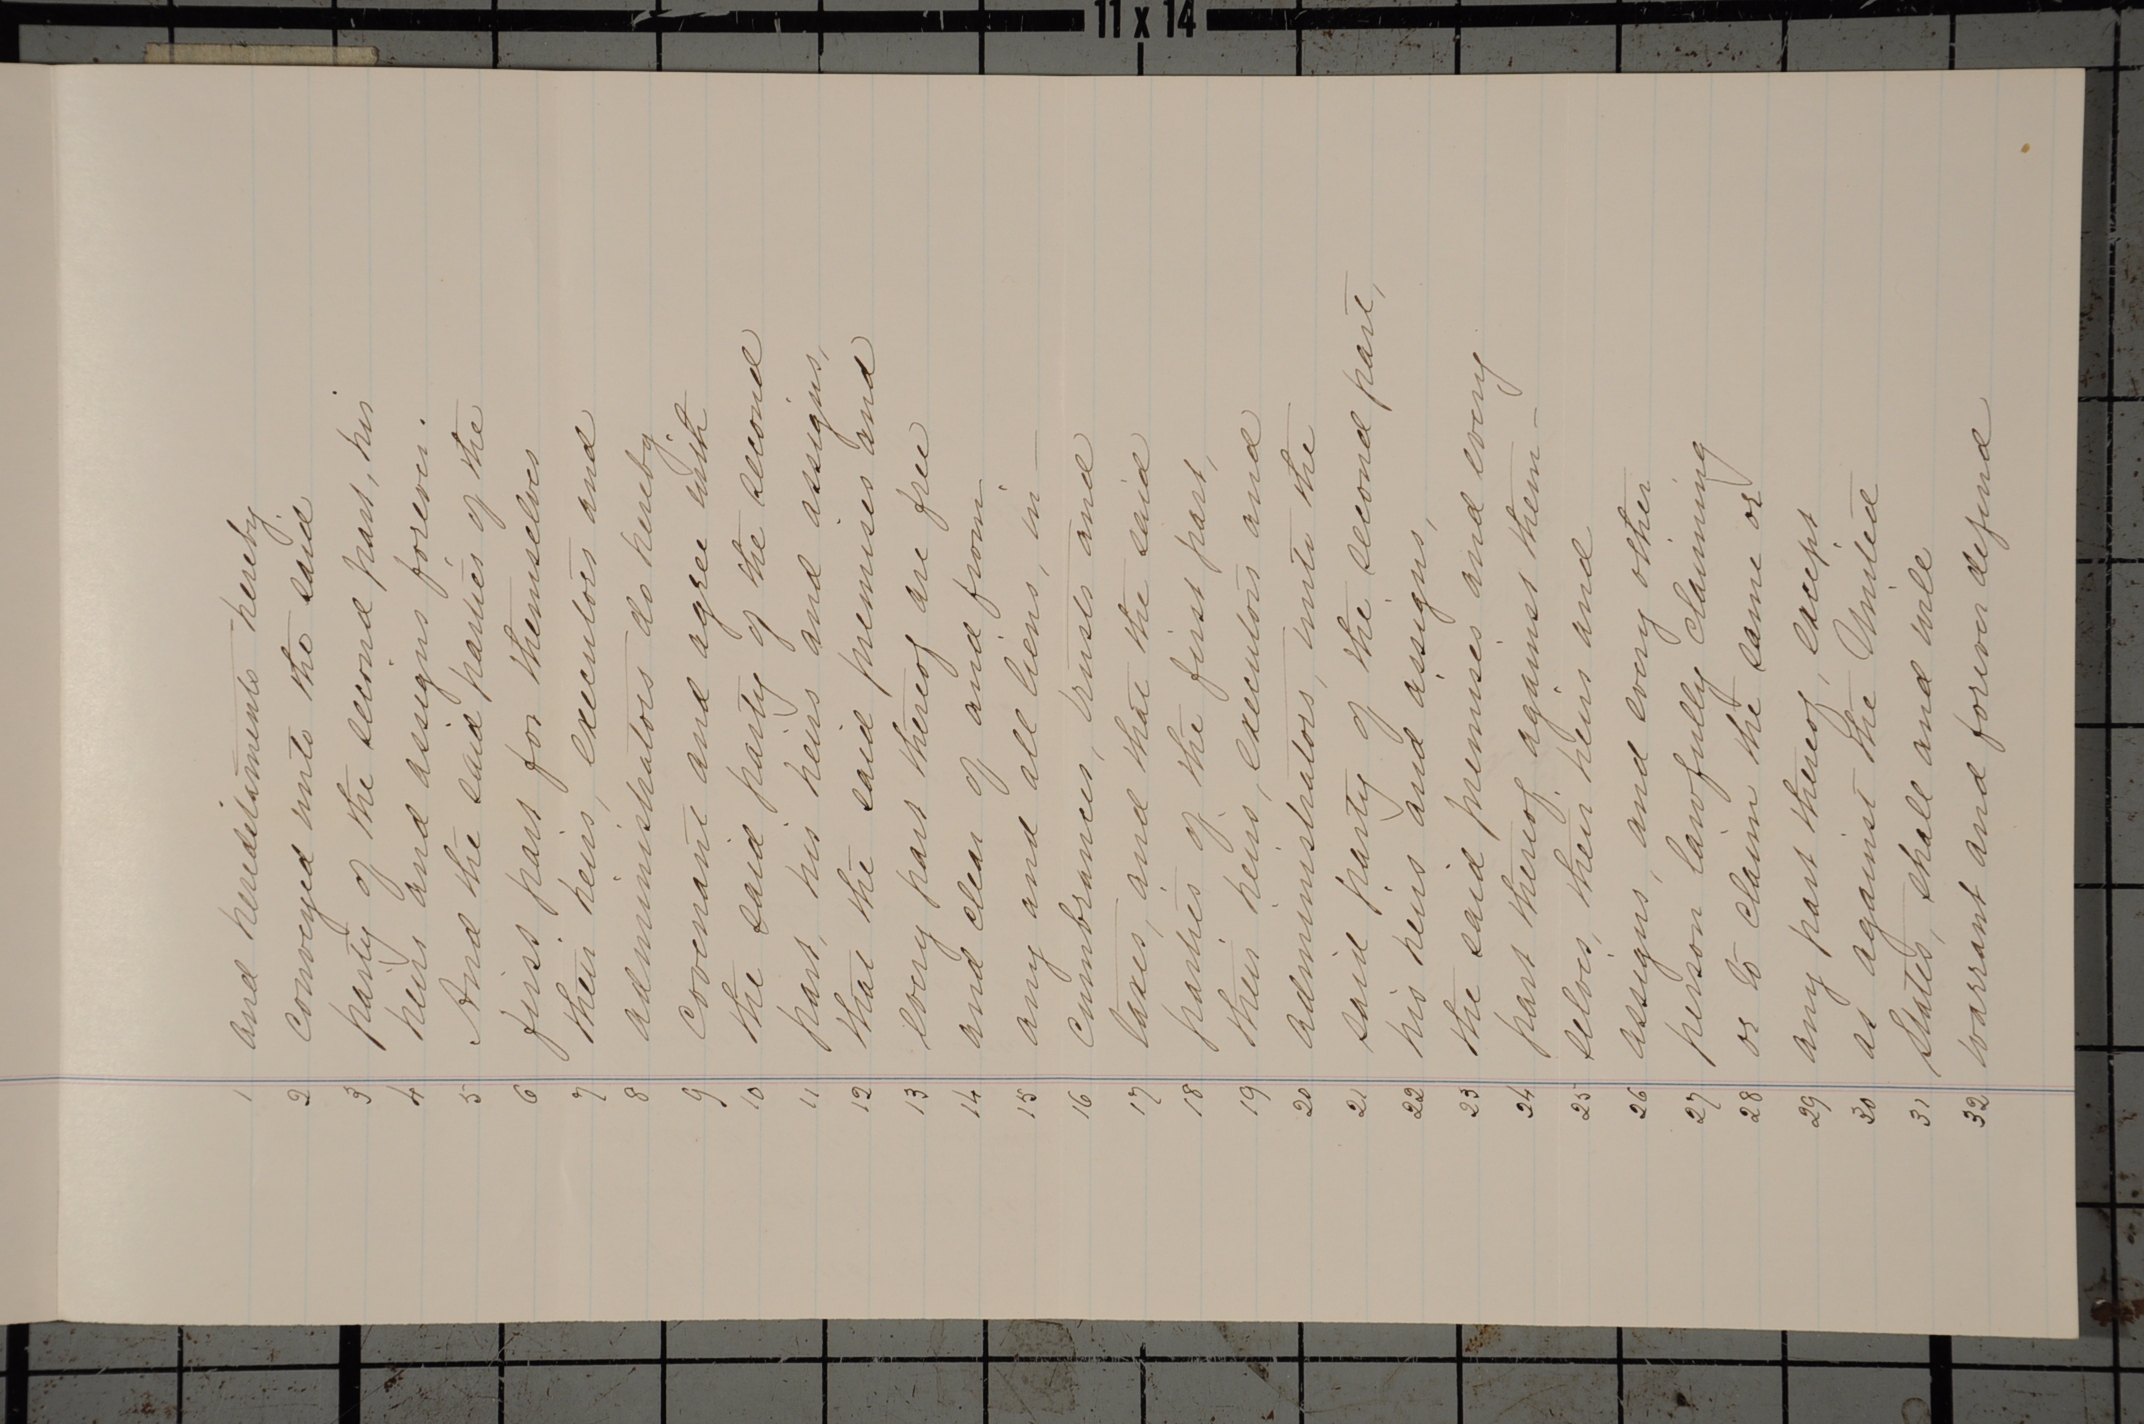 11 x 14
1 and hereditaments hereby
2 conveyed unto the said
3 party of the second part, his
4 heirs and assigns forever.
5 And the said parties of the
6 first part for themselves
7 their heirs, executors and
8 administrators do hereby
9 covenant and agree with
10 the said party of the second
11 part, his heirs and assigns,
12 that the said premises and
13 every part thereof are free
14 and clear of and from
15 any and all liens, in-
16 cumbrances, trusts and
17 taxes, and that the said
18 parties of the first part,
19 their heirs, executors and
20 administrators, unto the
21 said party of the second part,
22 his heirs and assigns,
23 the said premises and every
24 part thereof against them-
25 selves, their heirs and
26 assigns, and every other
27 person lawfully claiming
28 or to claim the same or
29 any part thereof, except
30 as against the United
31 States, shall and will
32 warrant and forever defend